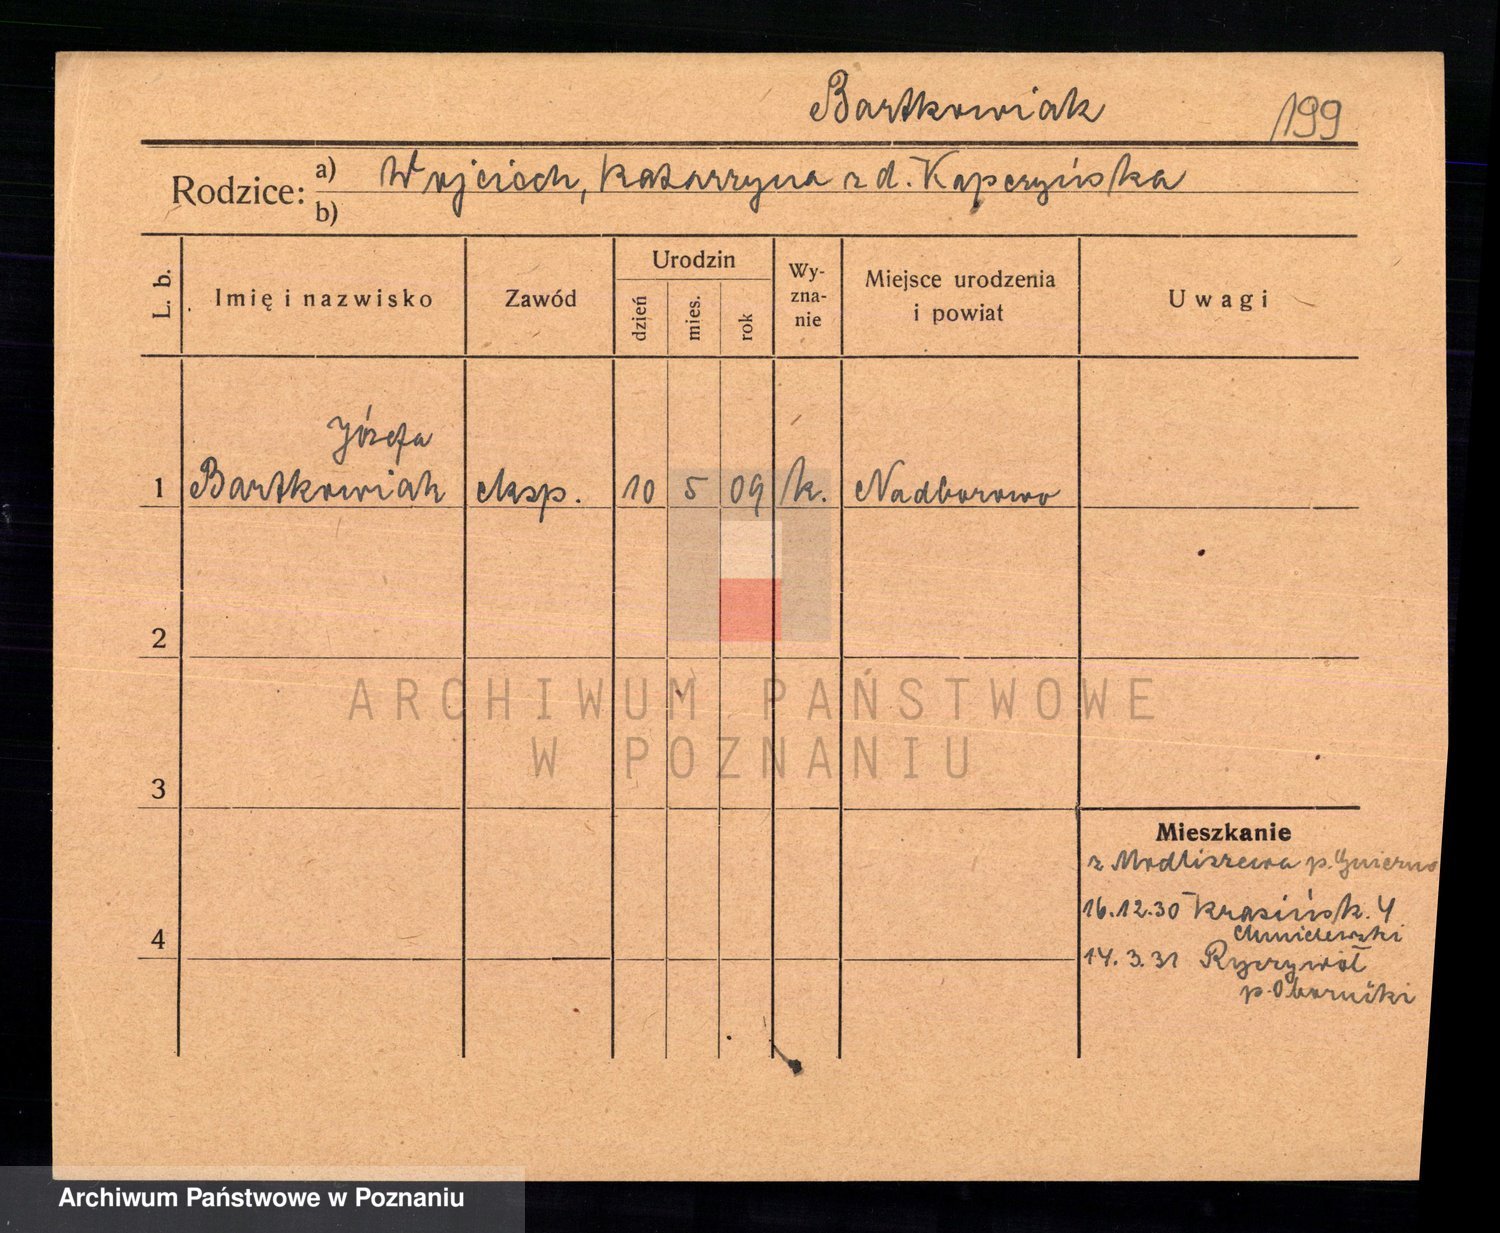 Bartkowiak 199
Rodzice: a) Wojciech, Katarzyna z d. Kapczyńska
b)
L. b. Imię i nazwisko Zawód Urodzin dzień mies. rok Wy-zna-nie Miejsce urodzenia i powiat Uwagi
Józefa
1 Bartkowiak eksp. 10 5 09 k. Nadborowo
2
ARCHIWUM PAŃSTWOWE
W POZNANIU
3
Mieszkanie
z Modliszewa p. Gniezno
16.12.30 Krasińsk. 4
Chmielewski
4
14.3.31 Ryczywół
p. Oborniki
Archiwum Państwowe w Poznaniu